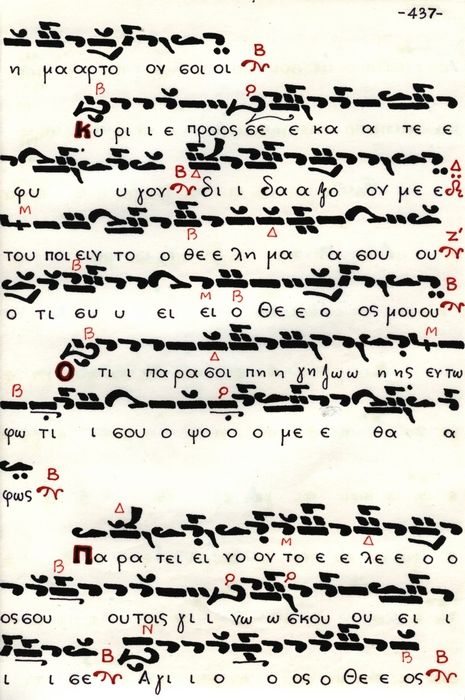 -437-
η μα αρτο ον σοι οι
Κυ ρι ι ε προος σε ε κα α τε ε
φυ υ γον δι ι δα α ξο ον με ε
του ποι ειν το ο θε ε λη μα α α σου ου
ο τι συ υ ει ει ο Θε ε ο ος μου ου
Ο τι ι πα ρα σοι πη η γη ζω ω η ης εν τω
φω τι ι σου ο ψο ο ο με ε θα α
φως
Πα ρα τει ει νο ον το ε ε λε ε ο ο
ος σου ου τοις γι ι νω ω σκου ου σι ι
ι ι σε Α γι ι ο ο ος ο Θε ε ος